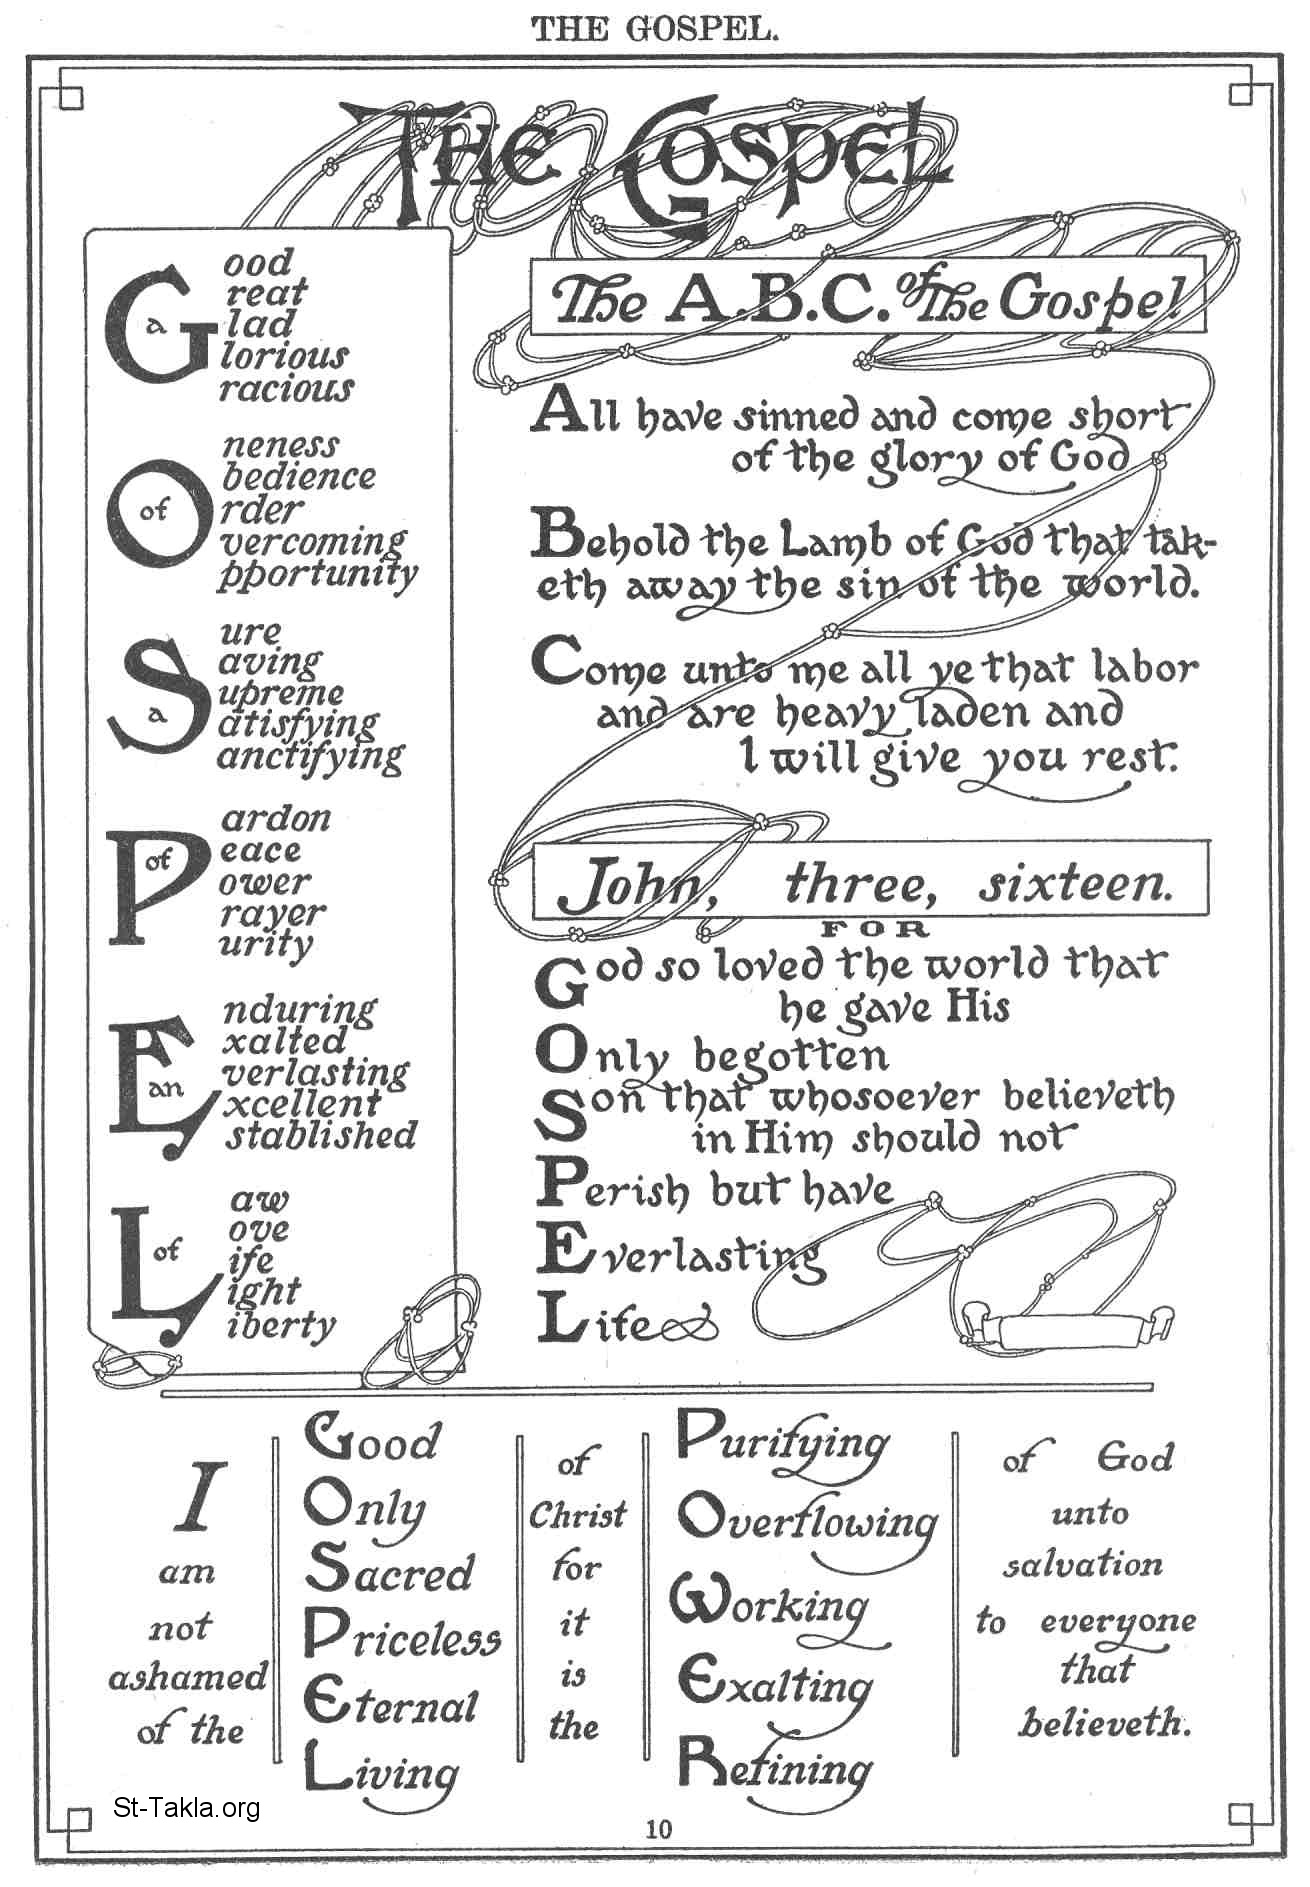 THE GOSPEL.
THE GOSPEL
G
a
ood
reat
lad
lorious
racious
O
of
neness
bedience
rder
vercoming
pportunity
S
a
ure
aving
upreme
atisfying
anctifying
P
of
ardon
eace
ower
rayer
urity
E
an
nduring
xalted
verlasting
xcellent
stablished
L
of
aw
ove
ife
ight
iberty
The A.B.C. of The Gospel
All have sinned and come short
of the glory of God
Behold the Lamb of God that tak-
eth away the sin of the world.
Come unto me all ye that labor
and are heavy laden and
I will give you rest.
John, three, sixteen.
FOR
God so loved the world that
he gave His
Only begotten
Son that whosoever believeth
in Him should not
Perish but have
Everlasting
Life
I
am
not
ashamed
of the
Good
Only
Sacred
Priceless
Eternal
Living
of
Christ
for
it
is
the
Purifying
Overflowing
Working
Exalting
Refining
of God
unto
salvation
to everyone
that
believeth.
St-Takla.org
10